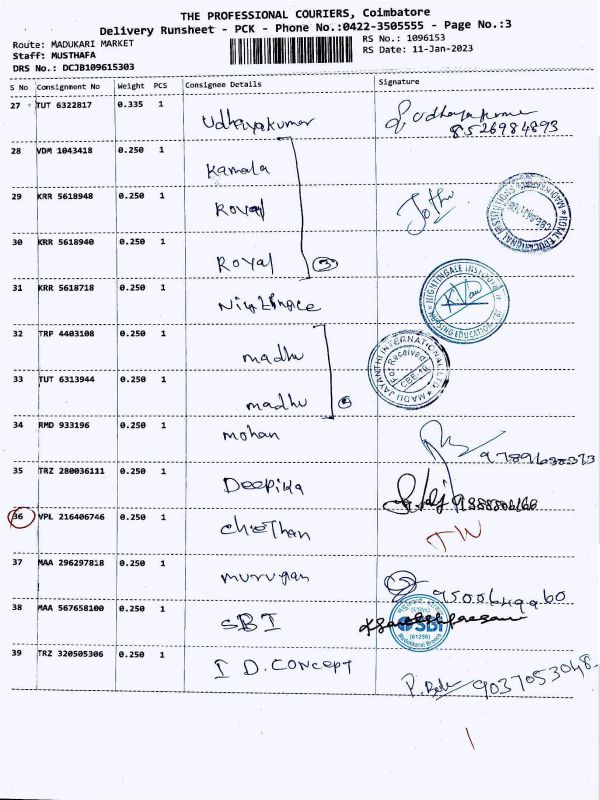 THE PROFESSIONAL COURIERS, Coimbatore
Delivery Runsheet - PCK - Phone No.:0422-3505555 - Page No.:3
Route: MADUKARI MARKET
RS No.: 1096153
Staff: MUSTHAFA
RS Date: 11-Jan-2023
DRS No.: DCJB109615303
S No Consignment No Weight PCS Consignee Details Signature
27 TUT 6322817 0.335 1 Udhayakumar Udhayakumar
8526984893
28 VDM 1043418 0.250 1 Kamala
29 KRR 5618948 0.250 1 Royal Jothi
30 KRR 5618940 0.250 1 Royal 3
31 KRR 5618718 0.250 1 Nightingle
NIGHTINGALE INSTITUTE NURSING EDUCATION
32 TRP 4403108 0.250 1 madhu
MADU JAYANTHI INTERNATIONAL LTD
For Received
33 TUT 6313944 0.250 1 madhu
34 RMD 933196 0.250 1 mohan
35 TRZ 280036111 0.250 1 Deepika
36 VPL 216406746 0.250 1 Chethan
37 MAA 296297818 0.250 1 murugan
38 MAA 567658100 0.250 1 SBI
SBI
39 TRZ 320505306 0.250 1 I D. CONCEPT 9037053048